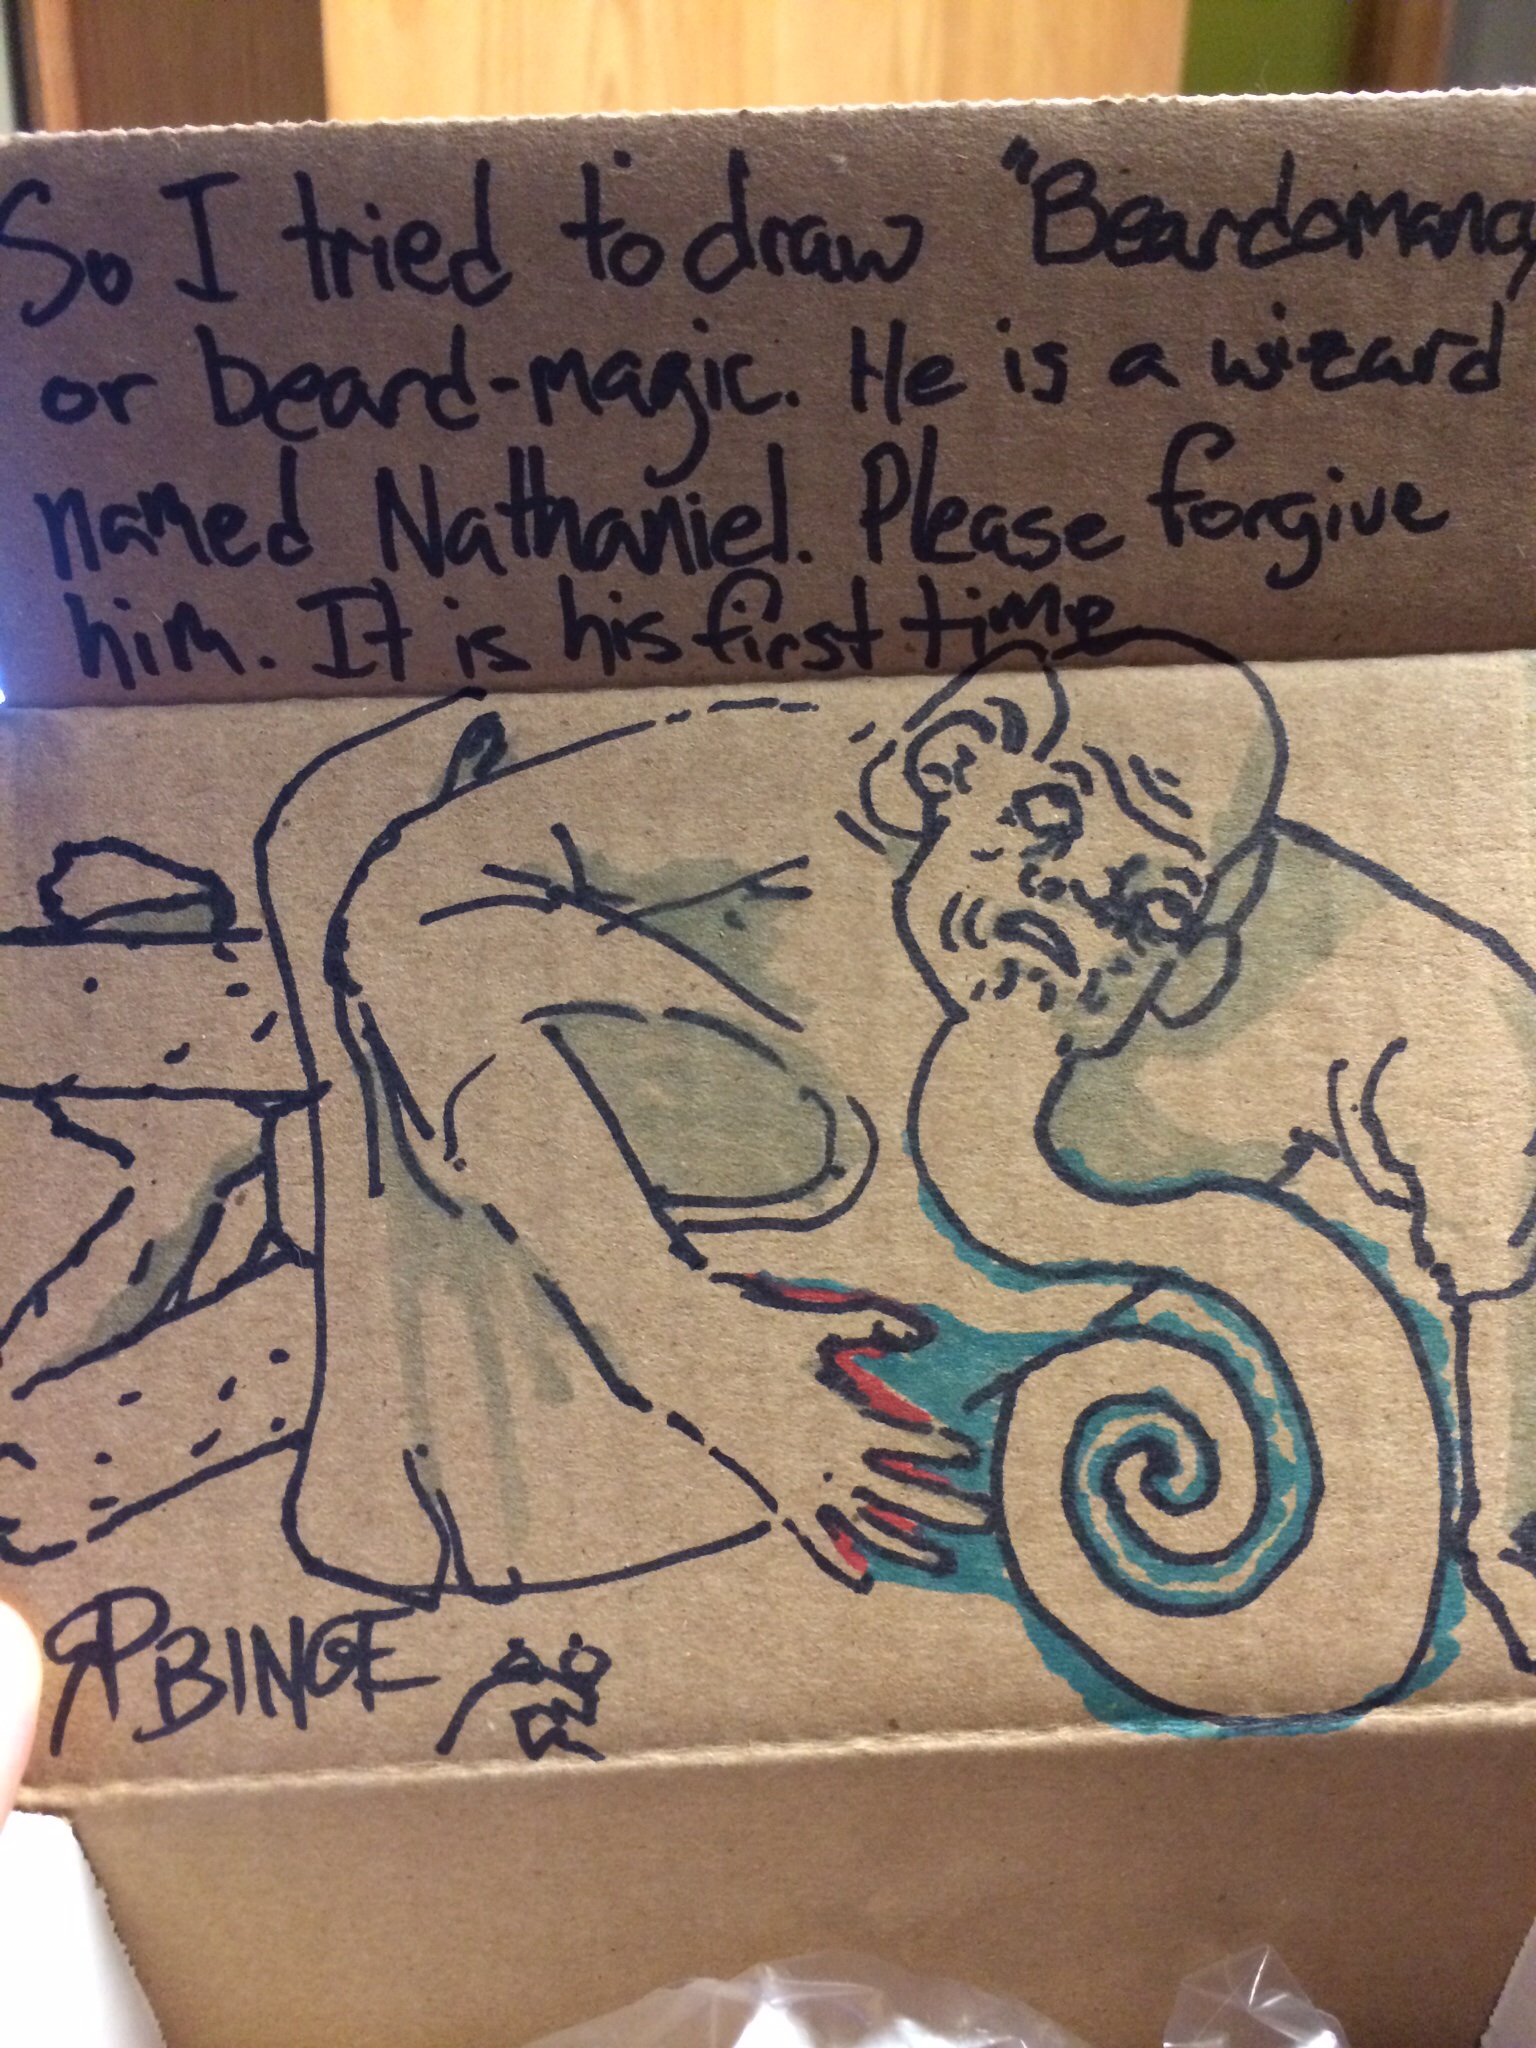 So I tried to draw "Beardomancy
or beard-magic. He is a wizard
named Nathaniel. Please forgive
him. It is his first time
BINGE